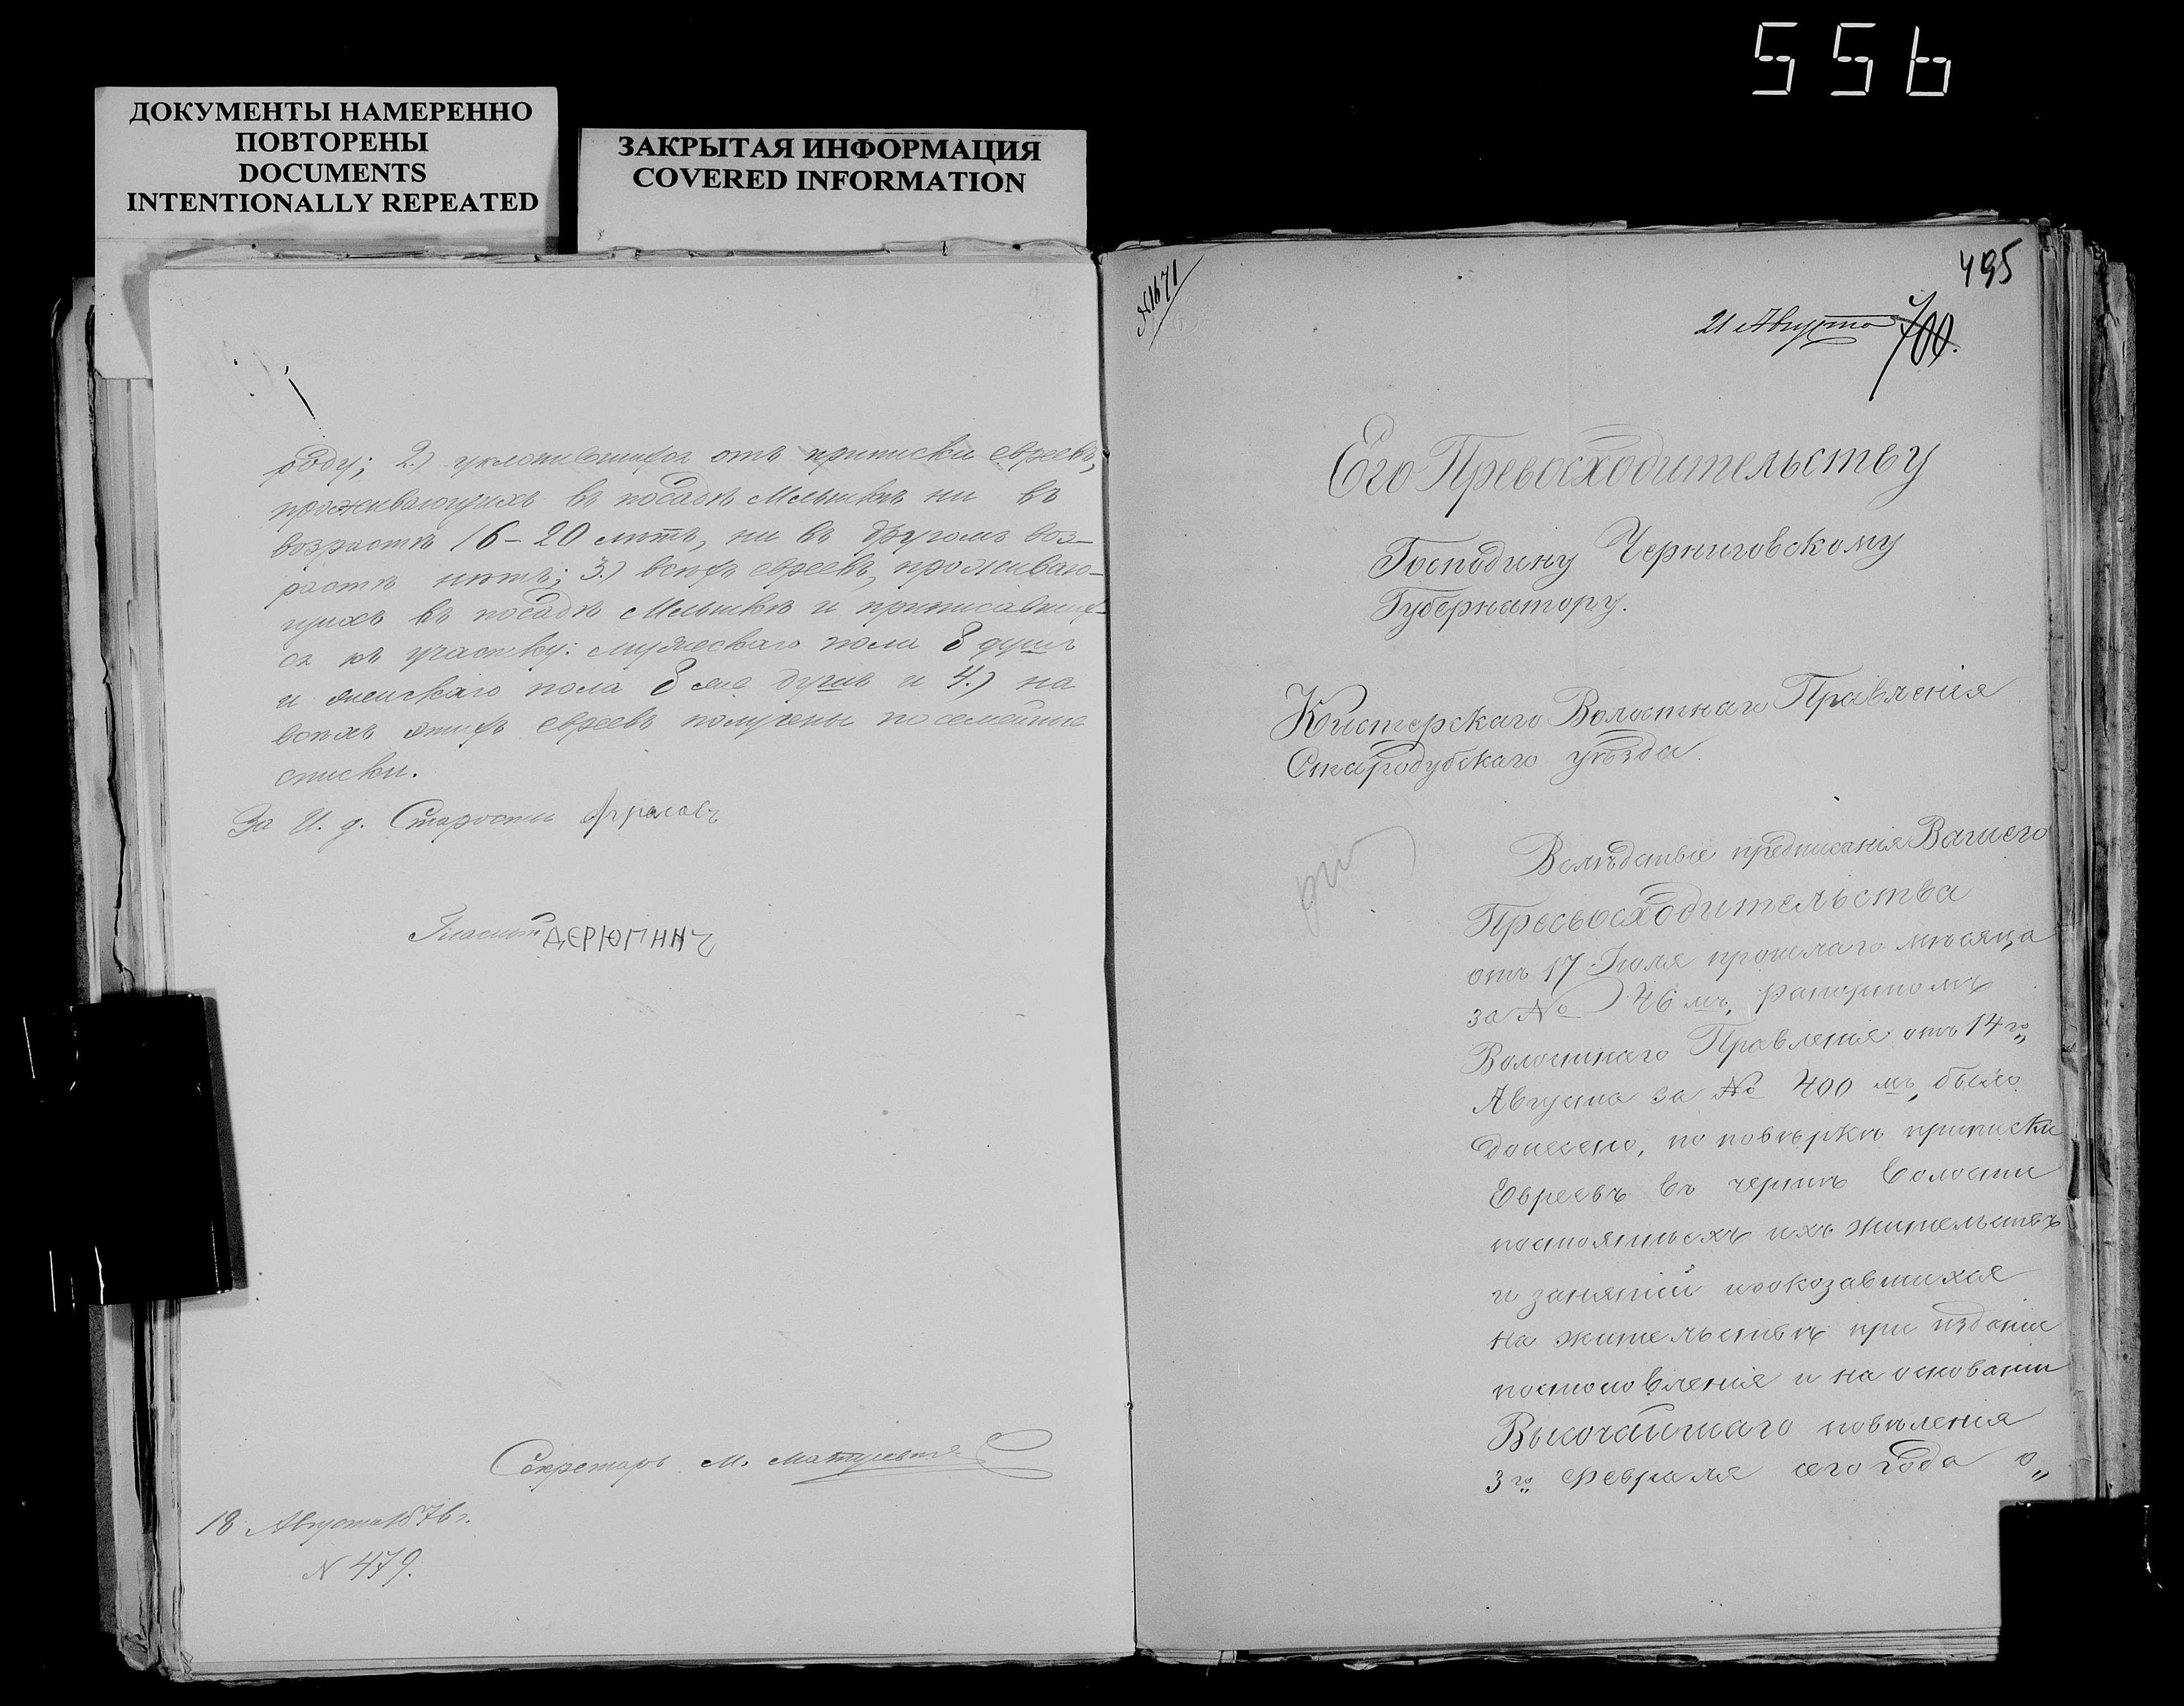 556
ДОКУМЕНТЫ НАМЕРЕННО
ПОВТОРЕНЫ
DOCUMENTS
INTENTIONALLY REPEATED
ЗАКРЫТАЯ ИНФОРМАЦИЯ
COVERED INFORMATION
роду; 2.) уклонившихся отъ приписки евреевъ,
проживающихъ въ посадѣ Мглинкѣ ни въ
возрастѣ 16-20 лѣтъ, ни въ другомъ воз-
растѣ нѣтъ; 3.) всѣхъ евреевъ, проживаю-
щихъ въ посадѣ и приписавших-
ся къ участку: мужескаго пола 8 душъ
и женскаго пола 8 же душъ и 4.) на
всѣхъ этихъ евреевъ получены посемейные
списки.
За И. д. Старосты
Гласный ДЕРЮГИНЪ
Секретарь М.
18 Августа 1876 г.
N 479.
№1671
495
21 Августа
700.
Его Превосходительству
Господину Черниговскому
Губернатору.
Кистерскаго Волостнаго Правленія
Стародубскаго уѣзда.
Вслѣдствіе предписанія Вашего
Превосходительства
отъ 17 Іюля прошлаго мѣсяца
за № 46 мъ, рапортомъ
Волостнаго Правленія отъ 14 го"
Августа за № 400 мъ, было
донесено, по повѣркѣ приписки
Евреевъ въ чертѣ волости
постоянныхъ ихъ жительствъ
и занятій и оказавшихся
на жительствѣ при изданіи
постановленія и на основаніи
Высочайшаго повѣленія
3 го Февраля сего года о"